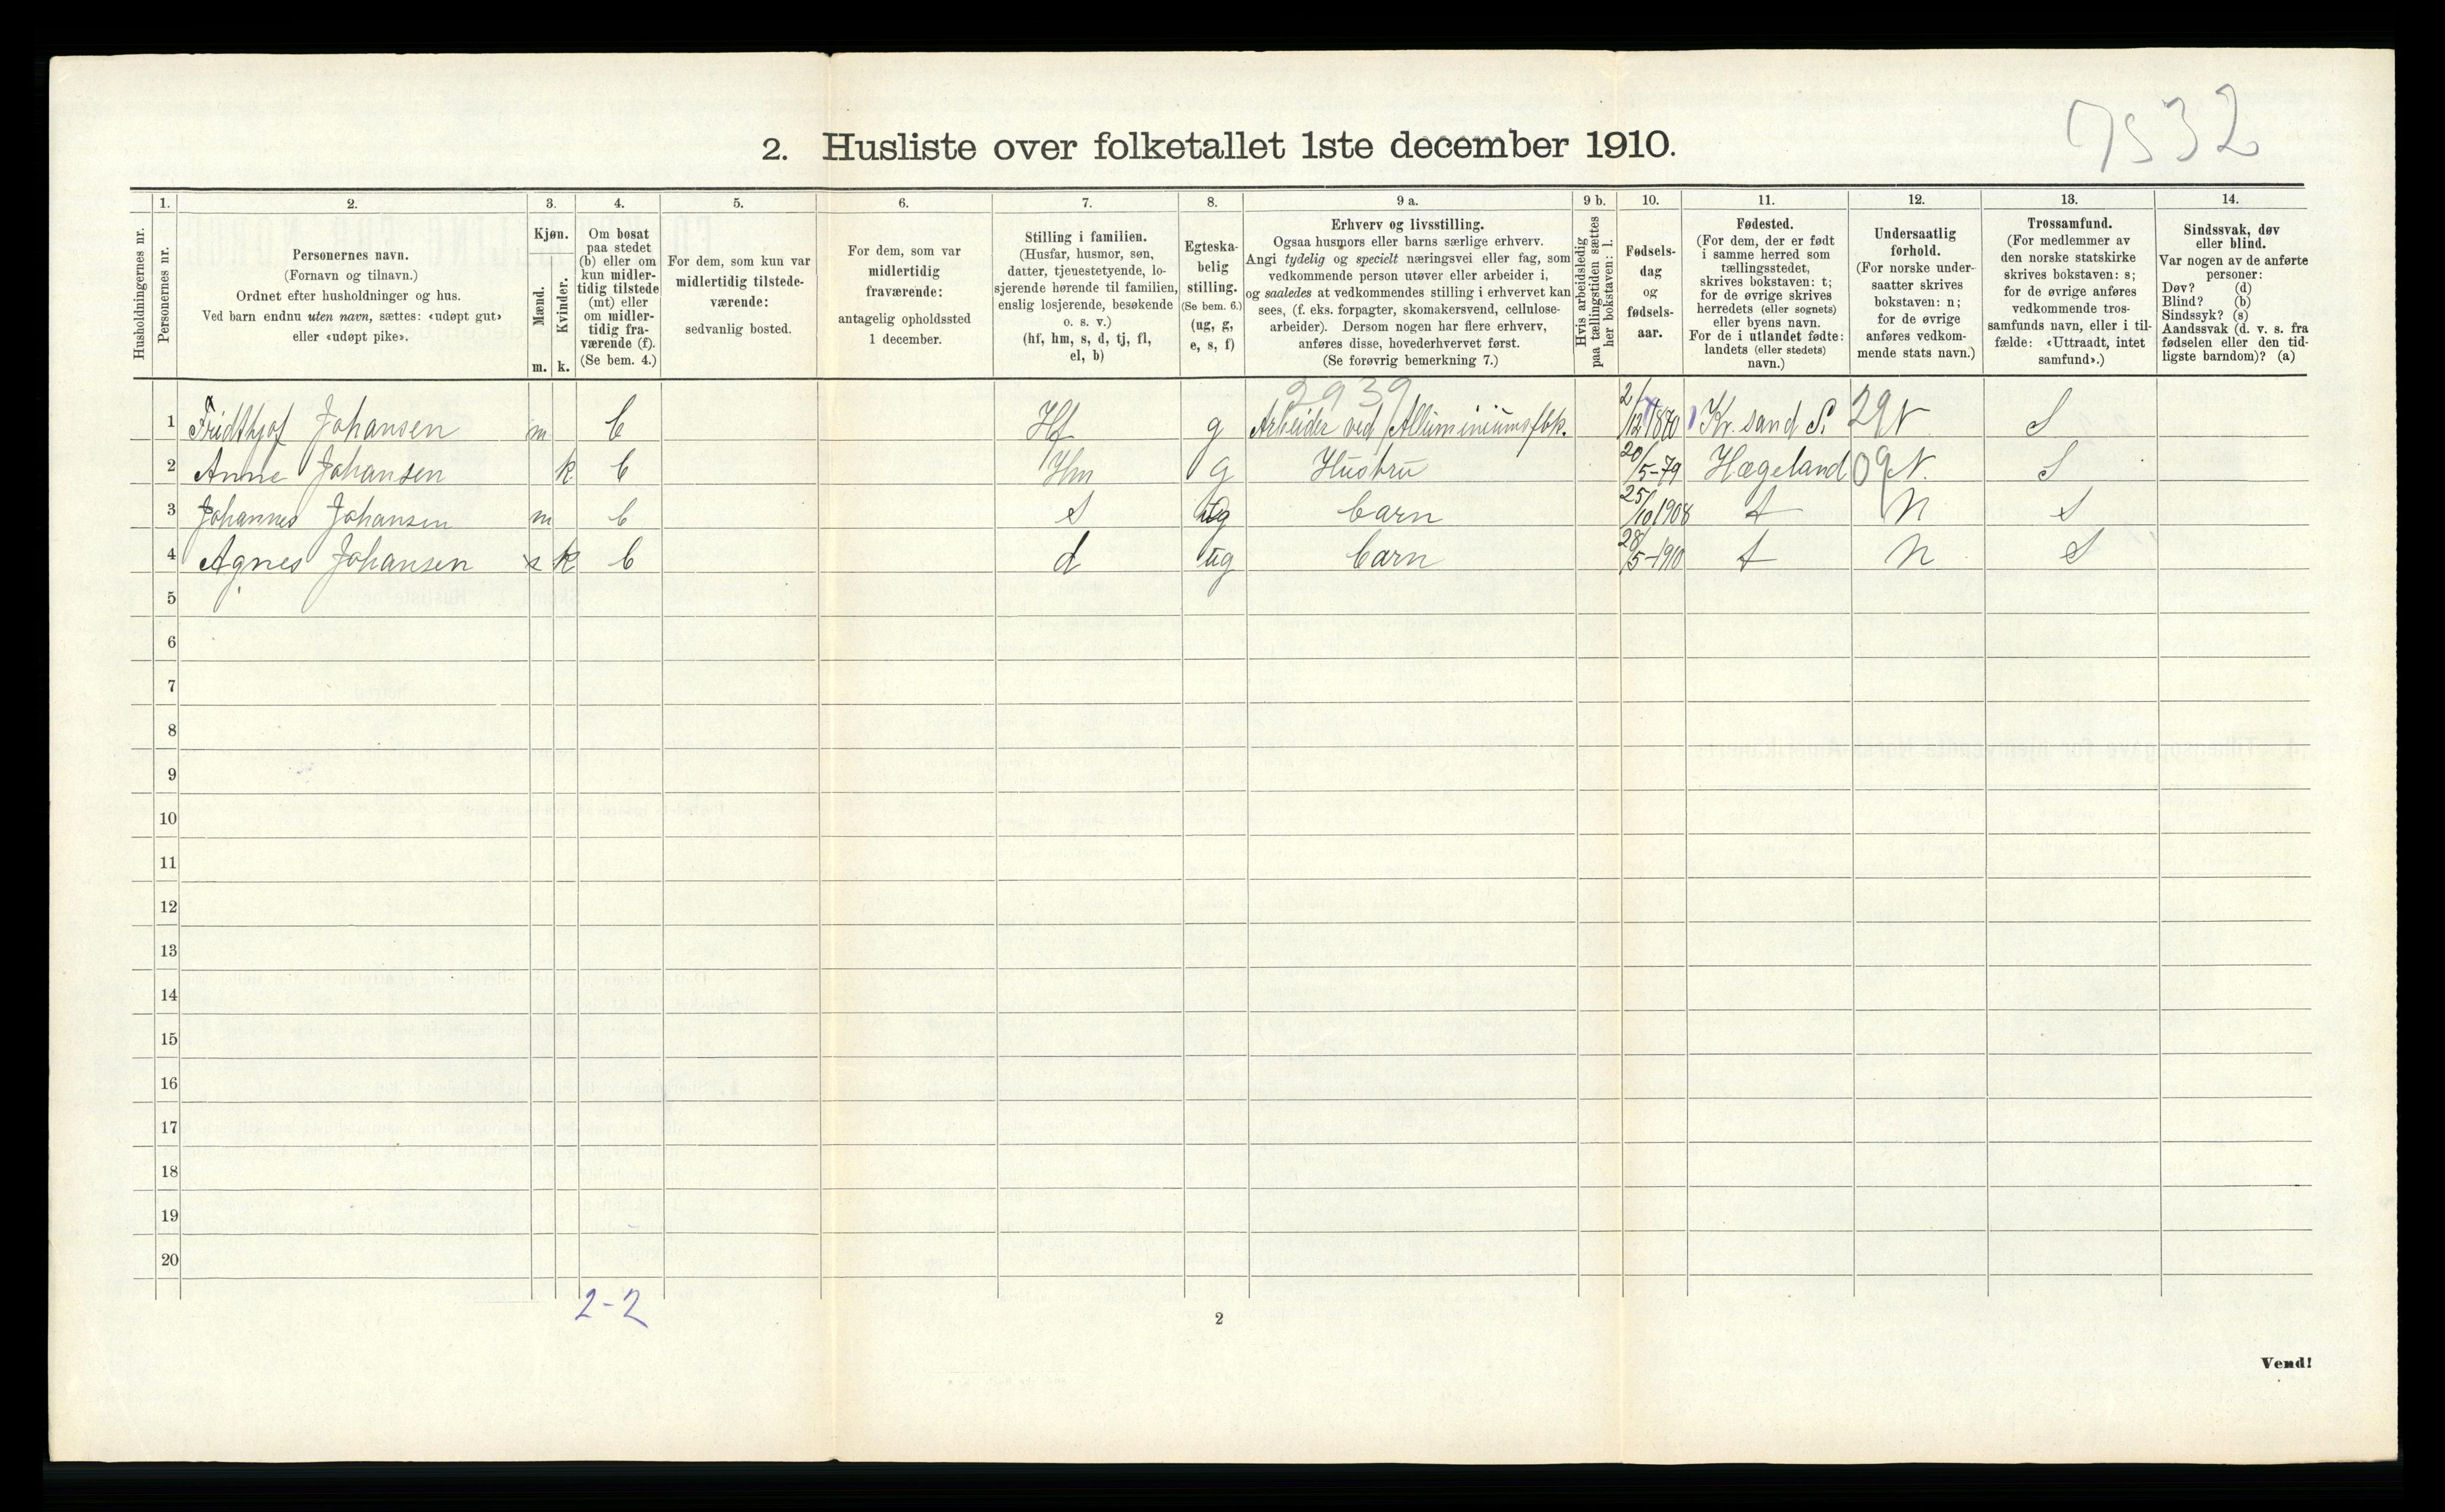 2. Husliste over folketallet 1ste december 1910.
Husholdningernes nr.
1.
Personernes nr.
2.
Personernes navn.
(Fornavn og tilnavn.)
Ordnet efter husholdninger og hus.
Ved barn endnu uten navn, sættes: «udøpt gut»
eller «udøpt pike».
3.
Kjøn.
Mænd.
Kvinder.
m. k.
4.
Om bosat
paa stedet
(b) eller om
kun midler-
tidig tilstede
(mt) eller
om midler-
tidig fra-
værende (f).
(Se bem. 4.)
5.
For dem, som kun var
midlertidig tilstede-
værende:
sedvanlig bosted.
6.
For dem, som var
midlertidig
fraværende:
antagelig opholdssted
1 december.
7.
Stilling i familien.
(Husfar, husmor, søn,
datter, tjenestetyende, lo-
sjerende hørende til familien,
enslig losjerende, besøkende
o. s. v.)
(hf, hm, s, d, tj, fl,
el, b)
8.
Egteska-
belig
stilling.
(Se bem. 6.)
(ug, g,
e, s, f)
9 a.
Erhverv og livsstilling.
Ogsaa husmors eller barns særlige erhverv.
Angi tydelig og specielt næringsvei eller fag, som
vedkommende person utøver eller arbeider i,
og saaledes at vedkommendes stilling i erhvervet kan
sees, (f. eks. forpagter, skomakersvend, cellulose-
arbeider). Dersom nogen har flere erhverv,
anføres disse, hovederhvervet først.
(Se forøvrig bemerkning 7.)
9 b.
Hvis arbeidsledig
paa tællingstiden sættes
her bokstaven: l.
10.
Fødsels-
dag
og
fødsels-
aar.
11.
Fødested.
(For dem, der er født
i samme herred som
tællingsstedet,
skrives bokstaven: t;
for de øvrige skrives
herredets (eller sognets)
eller byens navn.
For de i utlandet fødte:
landets (eller stedets)
navn.)
12.
Undersaatlig
forhold.
(For norske under-
saatter skrives
bokstaven: n;
for de øvrige
anføres vedkom-
mende stats navn.)
13.
Trossamfund.
(For medlemmer av
den norske statskirke
skrives bokstaven: s;
for de øvrige anføres
vedkommende tros-
samfunds navn, eller i til-
fælde: «Uttraadt, intet
samfund».)
14.
Sindssvak, døv
eller blind.
Var nogen av de anførte
personer:
Døv? (d)
Blind? (b)
Sindssyk? (s)
Aandssvak (d. v. s. fra
fødselen eller den tid-
ligste barndom)? (a)
2939
1 Fridthjof Johansen m b Hf g Arbeider ved Alluminiumsfbk. 2/12 1870 Kr.sand S. 29 N S
2 Anne Johansen k b Hm g Hustru 20/5-79 Hægeland 09 N. S
3 Johannes Johansen m b S ug barn 25/10 1908 t N S
4 Agnes Johansen k b d ug barn 28/5-1910 t N S
5
6
7
8
9
10
11
12
13
14
15
16
17
18
19
20
2-2
2
Vend!